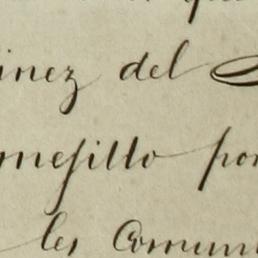 inez del
mesillo por
les Comun